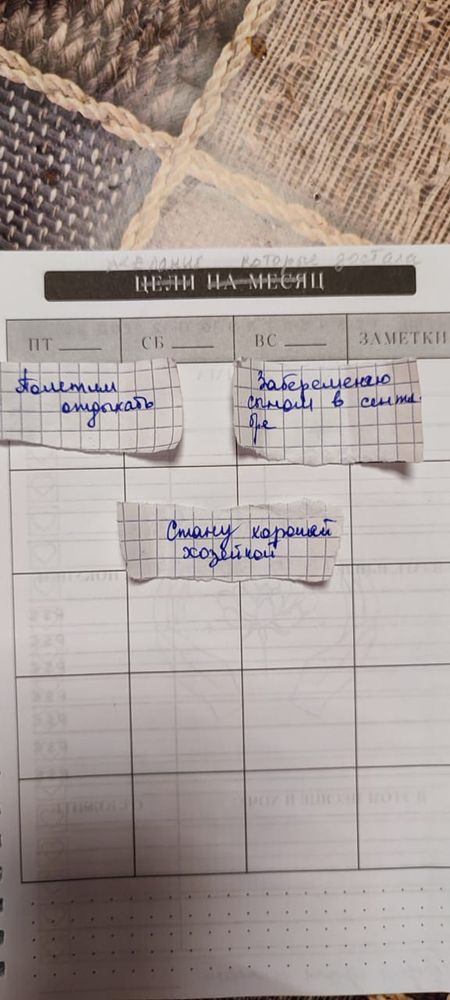 желания которые достала
ЦЕЛИ НА МЕСЯЦ
ПТ СБ ВС ЗАМЕТКИ
Полетим
отдыхать
Забеременею
сыном в сентя.
бре
Стану хорошей
хозяйкой